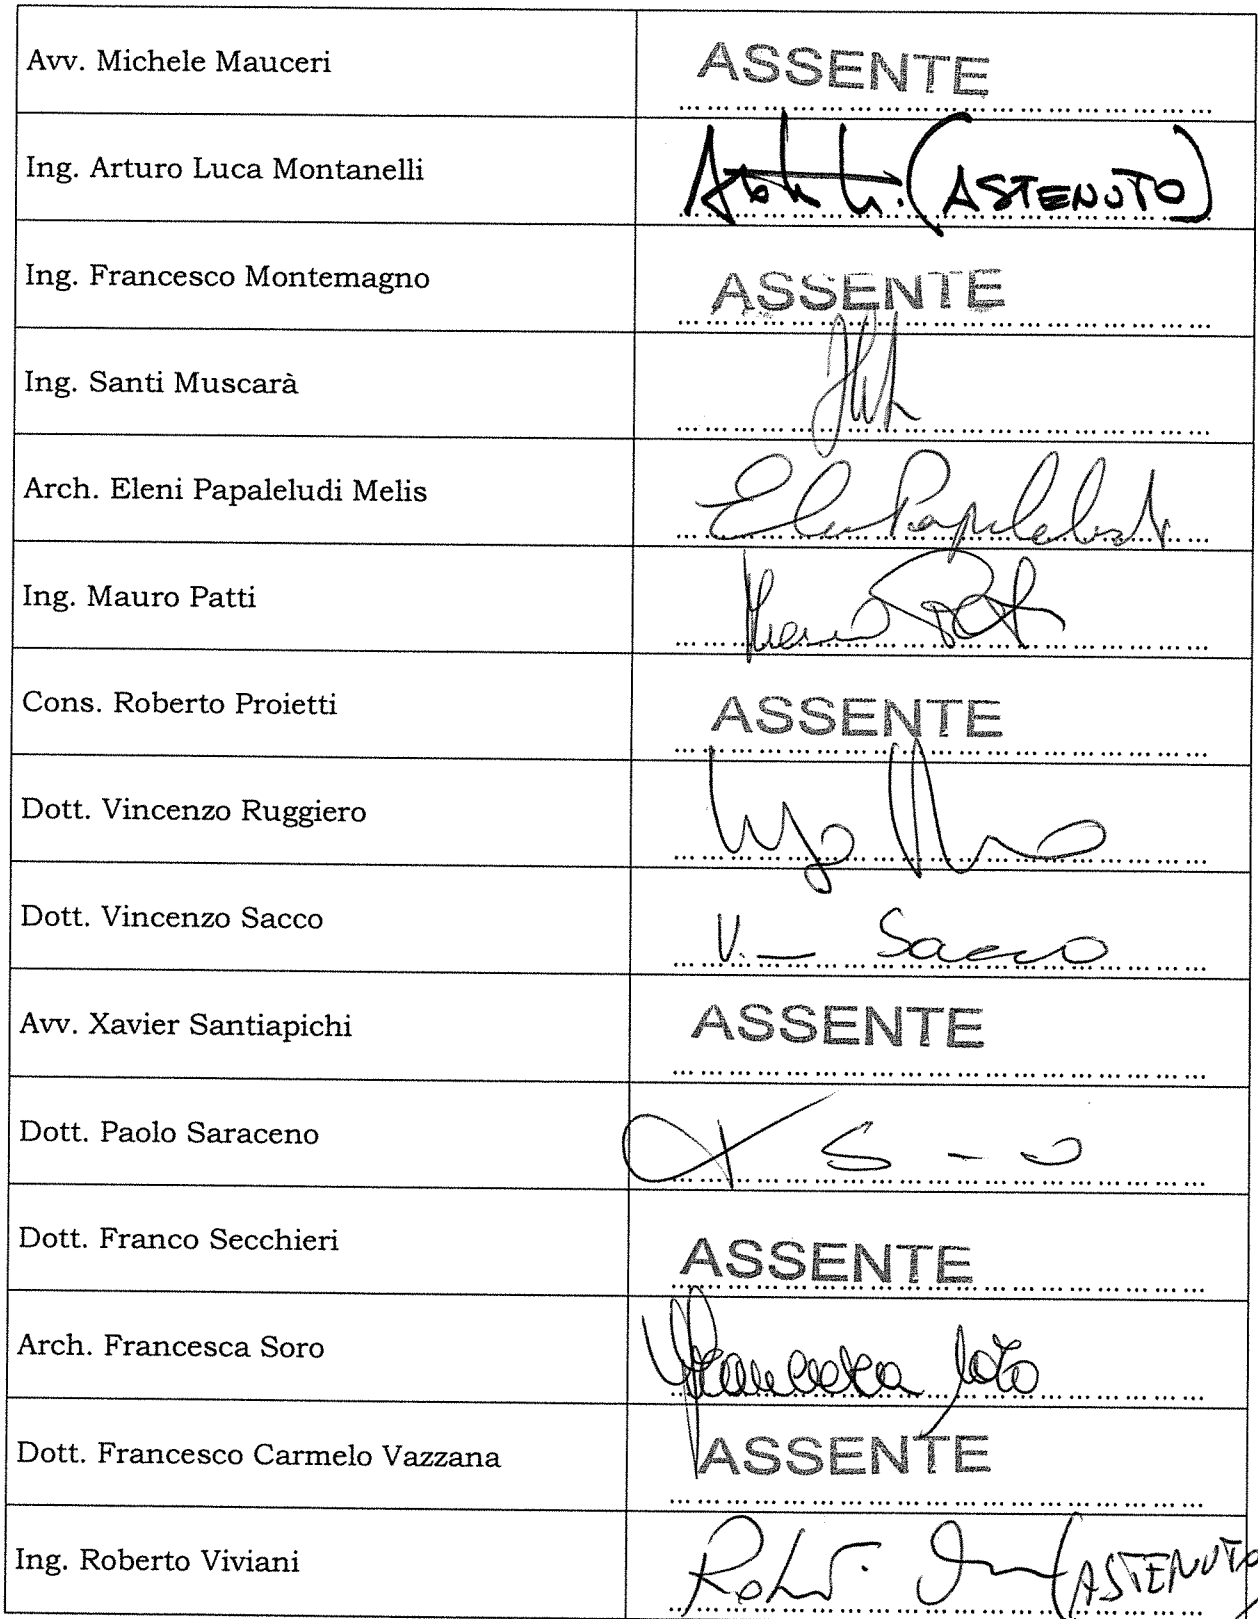 Avv. Michele Mauceri ASSENTE
Ing. Arturo Luca Montanelli (ASTENUTO)
Ing. Francesco Montemagno ASSENTE
Ing. Santi Muscarà
Arch. Eleni Papaleludi Melis
Ing. Mauro Patti
Cons. Roberto Proietti ASSENTE
Dott. Vincenzo Ruggiero
Dott. Vincenzo Sacco V. Sacco
Avv. Xavier Santiapichi ASSENTE
Dott. Paolo Saraceno
Dott. Franco Secchieri ASSENTE
Arch. Francesca Soro Francesca Soro
Dott. Francesco Carmelo Vazzana ASSENTE
Ing. Roberto Viviani (ASTENUTO